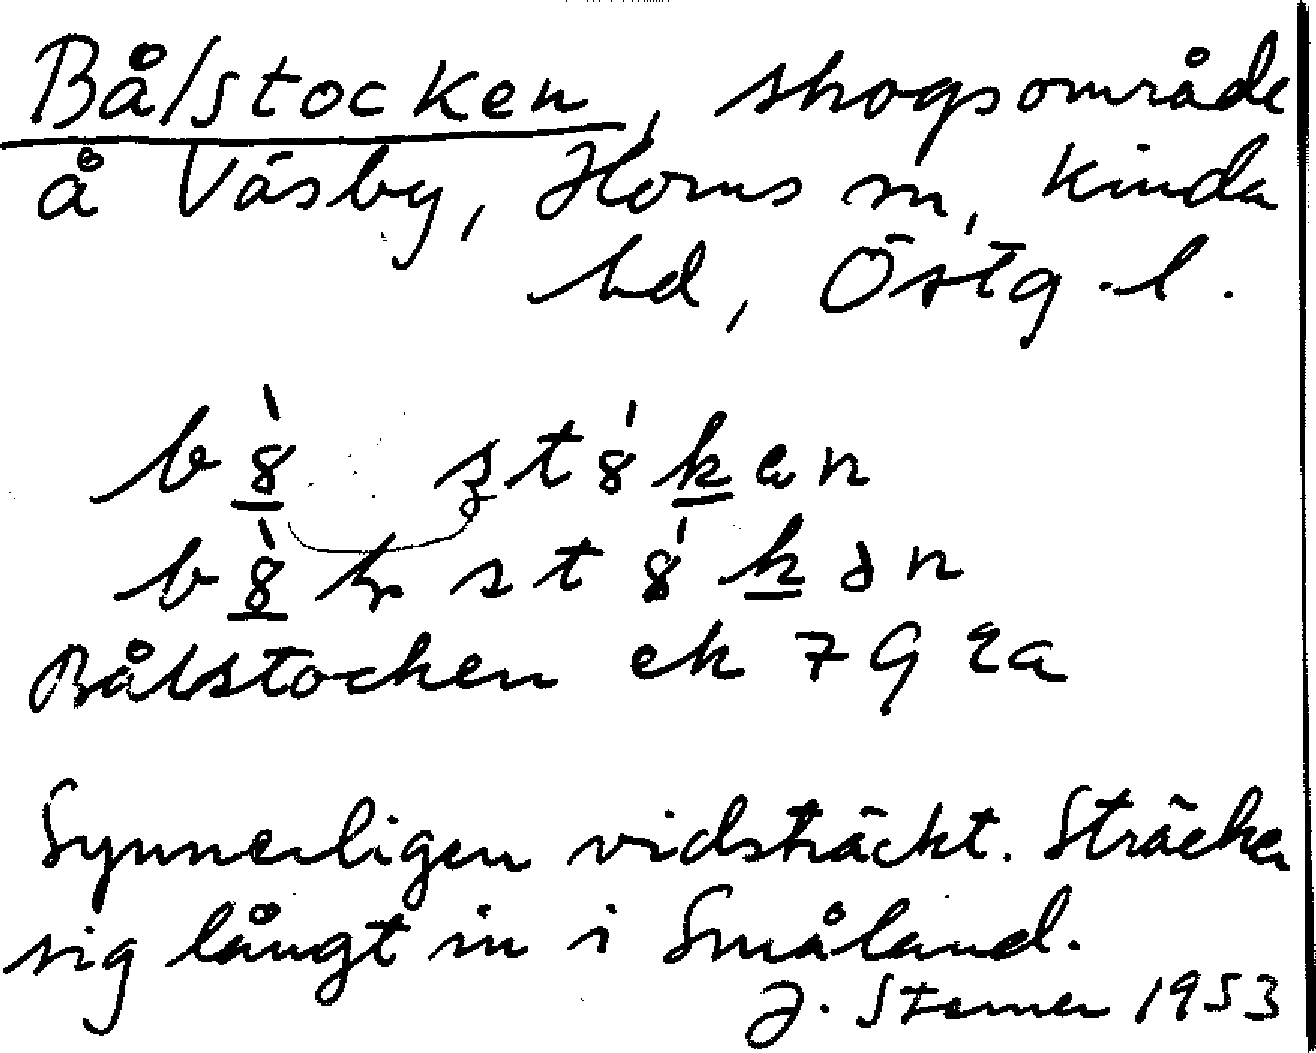 Bålstocken, skogsområde
å Väsby, Horns sn, Kinda
hd, Östg.l.
Bålstocken ek 7G 2a
Synnerligen vidsträckt. Sträcker
sig långt in i Småland.
J. Sterner 1953